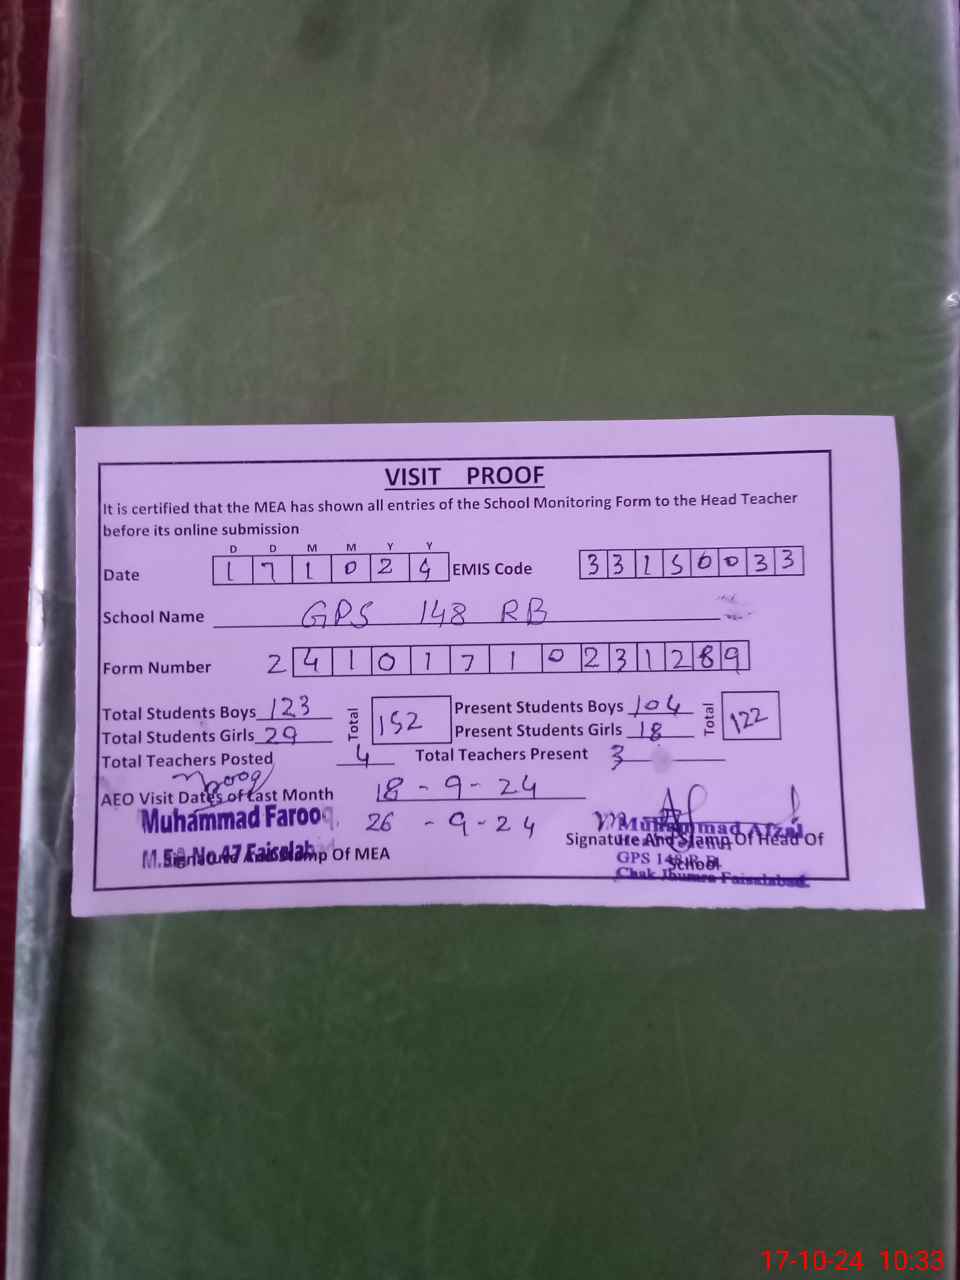 VISIT PROOF
It is certified that the MEA has shown all entries of the School Monitoring Form to the Head Teacher
before its online submission
D D M M Y Y
Date 1 7 1 0 2 4 EMIS Code 3 3 1 5 0 0 3 3
School Name GPS 148 RB
Form Number 2 4 1 0 1 7 1 0 2 3 1 2 8 9
Total Students Boys 123 Total 152 Present Students Boys 104 Total 122
Total Students Girls 29 Present Students Girls 18
Total Teachers Posted 4 Total Teachers Present 3
AEO Visit Dates of Last Month 18-9-24
Muhammad Farooq 26-9-24 Muhammad Afzal
Signature And Stamp Of Head Of
M.E.A No.47 Faisalabad
Signature And Stamp Of MEA
GPS 148 R.B
School
Chak Jhumra Faisalabad.
17-10-24 10:33